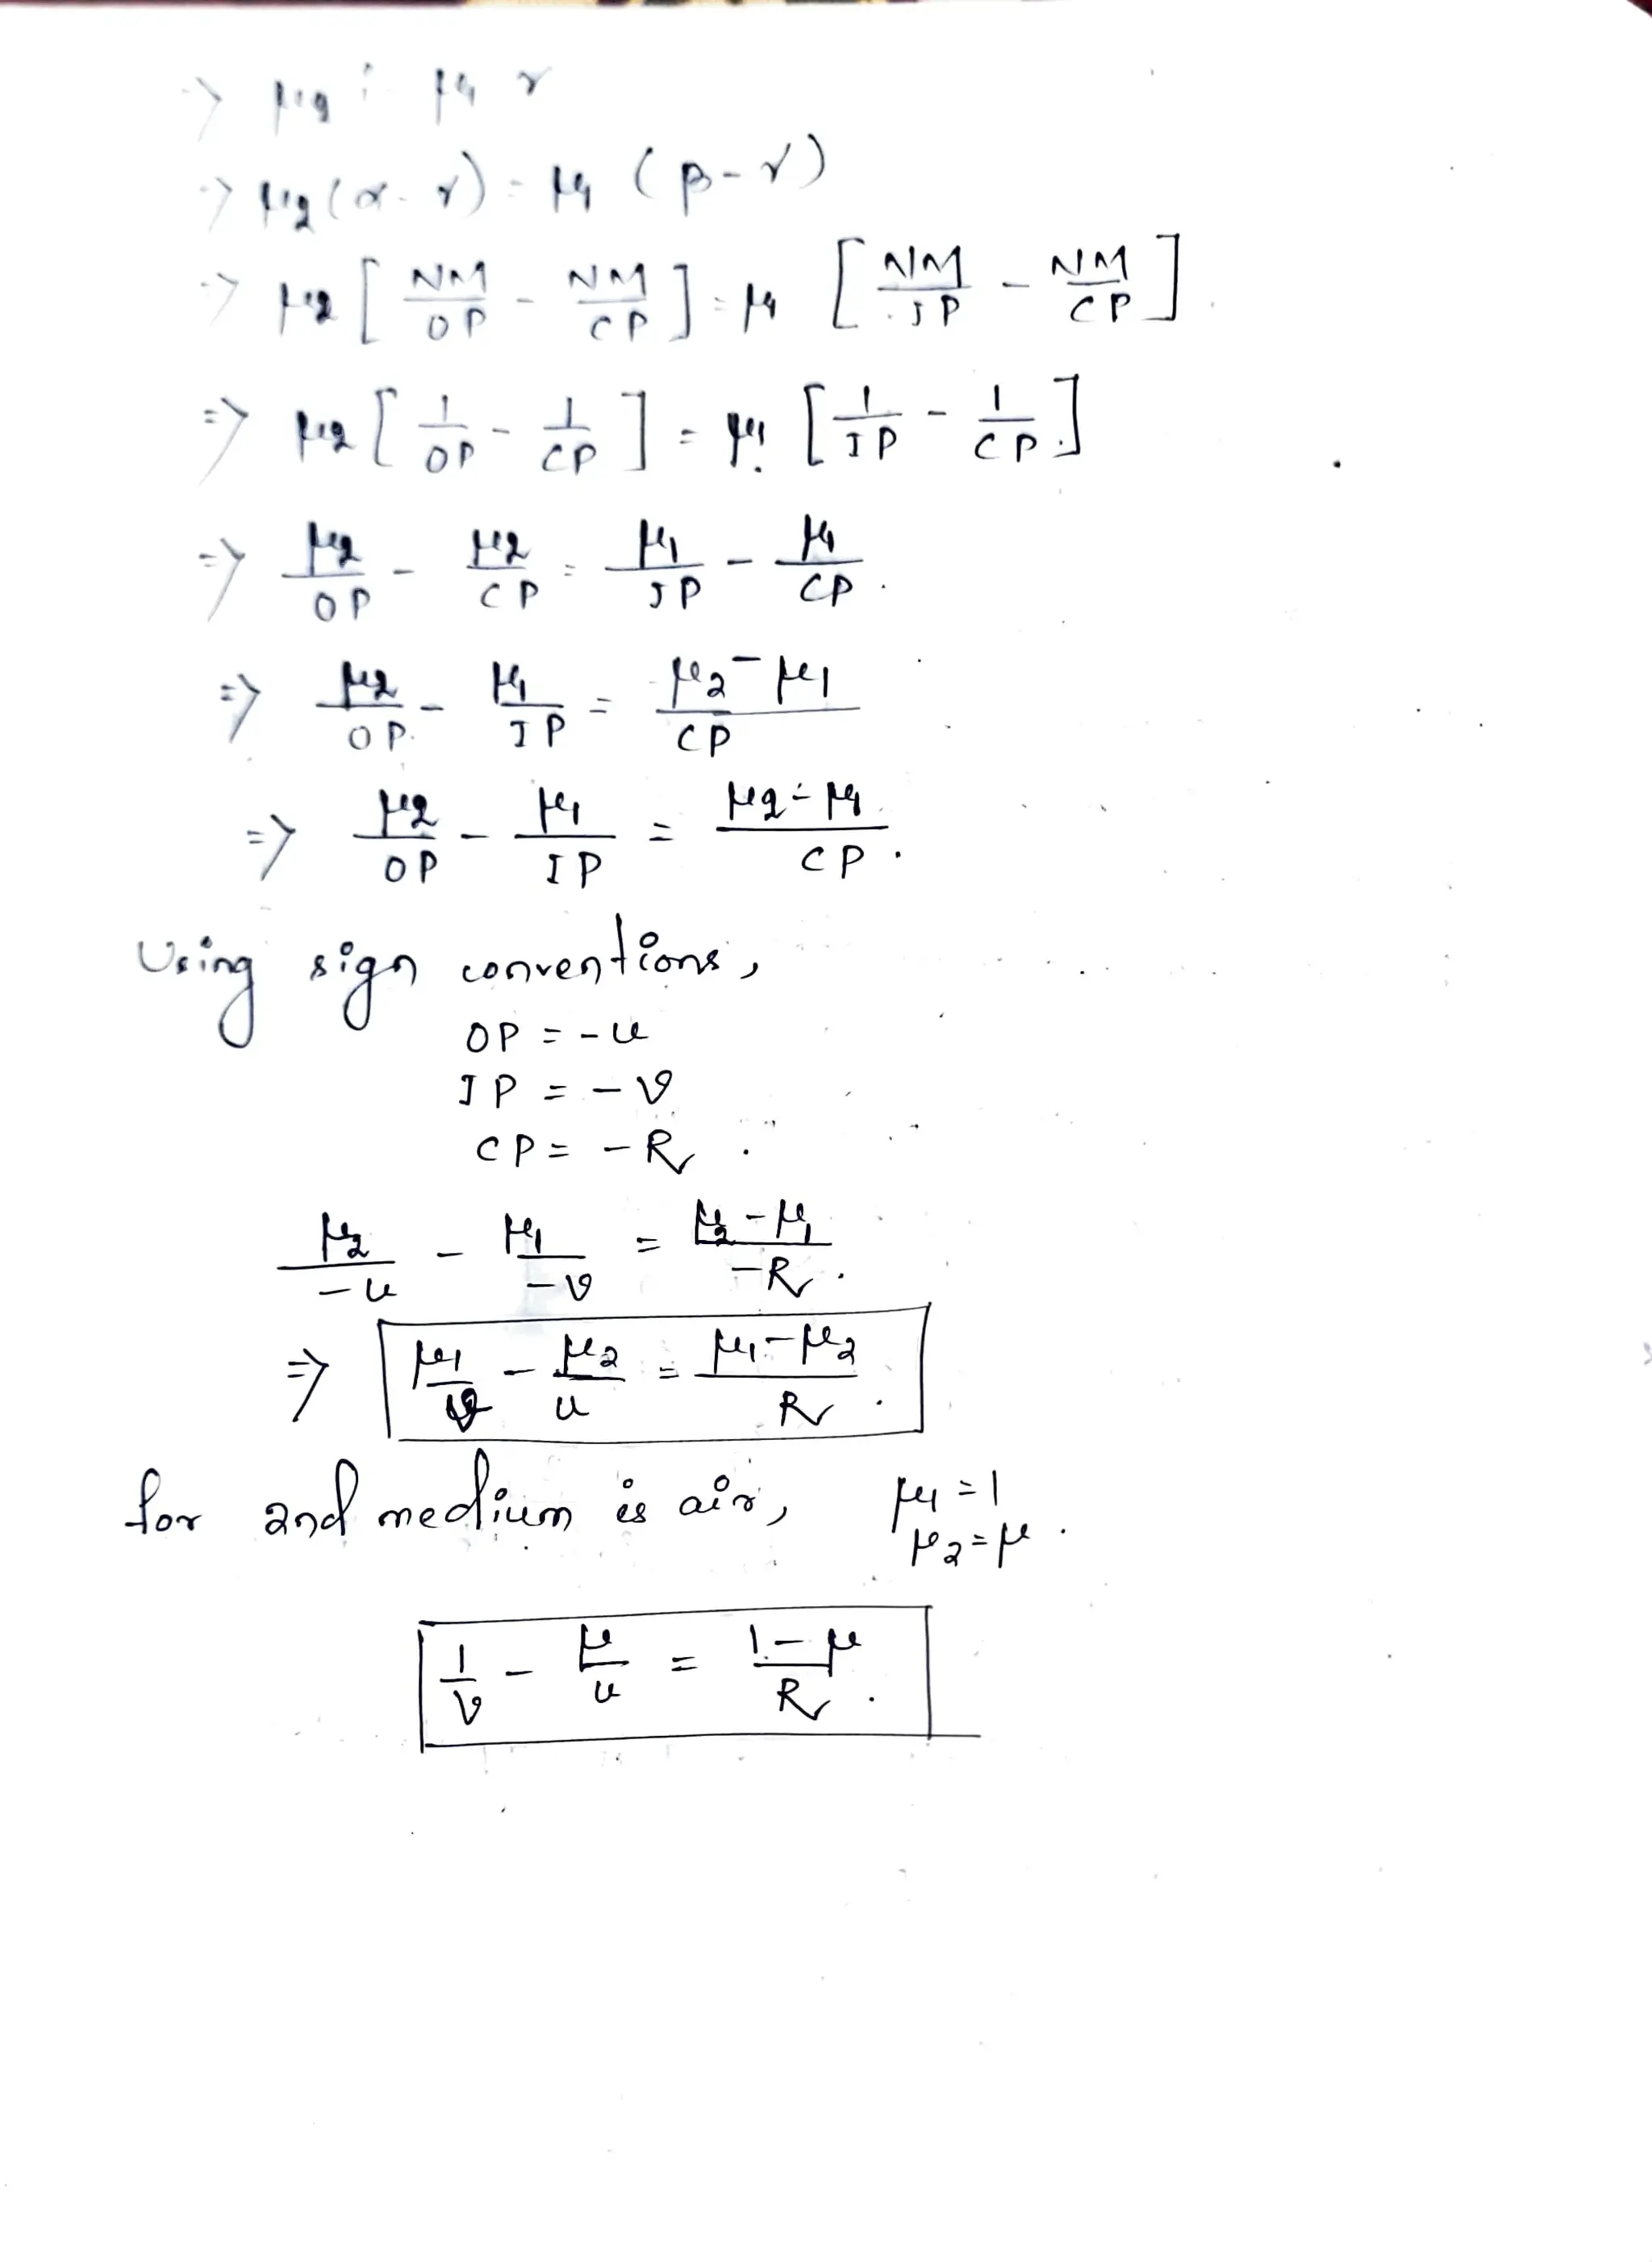 => μ2 i = μ1 r
=> μ2 (α - γ) = μ1 (β - γ)
=> μ2 [ NM/OP - NM/CP ] = μ1 [ NM/IP - NM/CP ].
=> μ2 [ 1/OP - 1/CP ] = μ1 [ 1/IP - 1/CP ]
=> μ2/OP - μ2/CP = μ1/IP - μ1/CP.
=> μ2/OP - μ1/IP = μ2 - μ1/CP
=> μ2/OP - μ1/IP = μ2 - μ1/CP.
Using sign conventions,
OP = -u
IP = -v
CP = -R.
μ2/-u - μ1/-v = μ2 - μ1/-R.
=> μ1/v - μ2/u = μ1 - μ2/R.
for 2nd medium is air, μ1 = 1
μ2 = μ.
1/v - μ/u = 1 - μ/R.